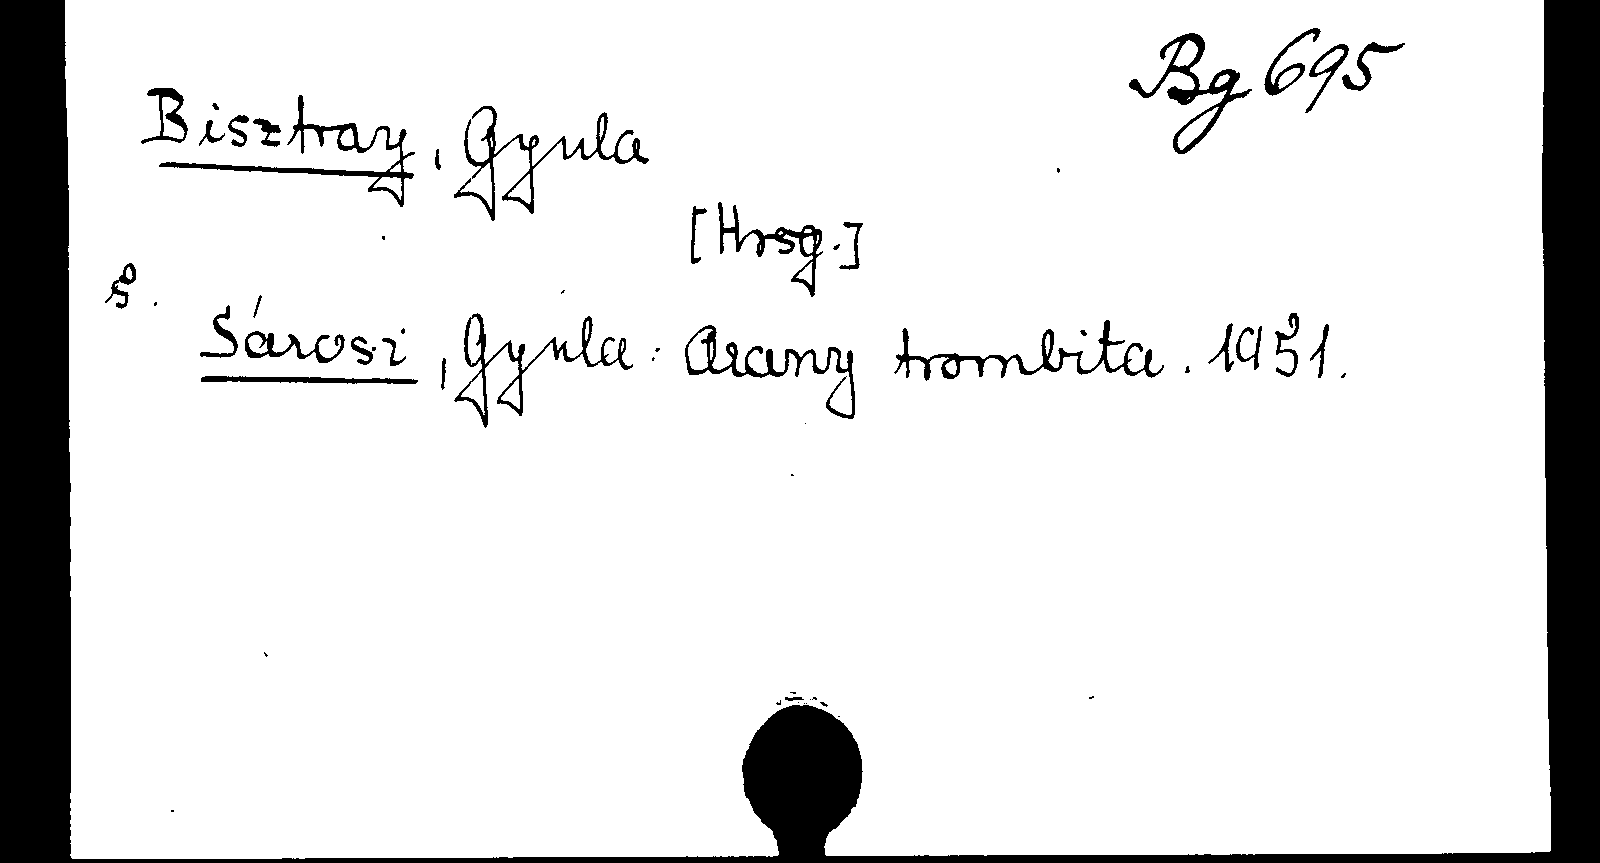 Bg 695
Bisztray, Gyula
[Hrsg.]
s.
Sárosi, Gyula: Arany trombita. 1951.